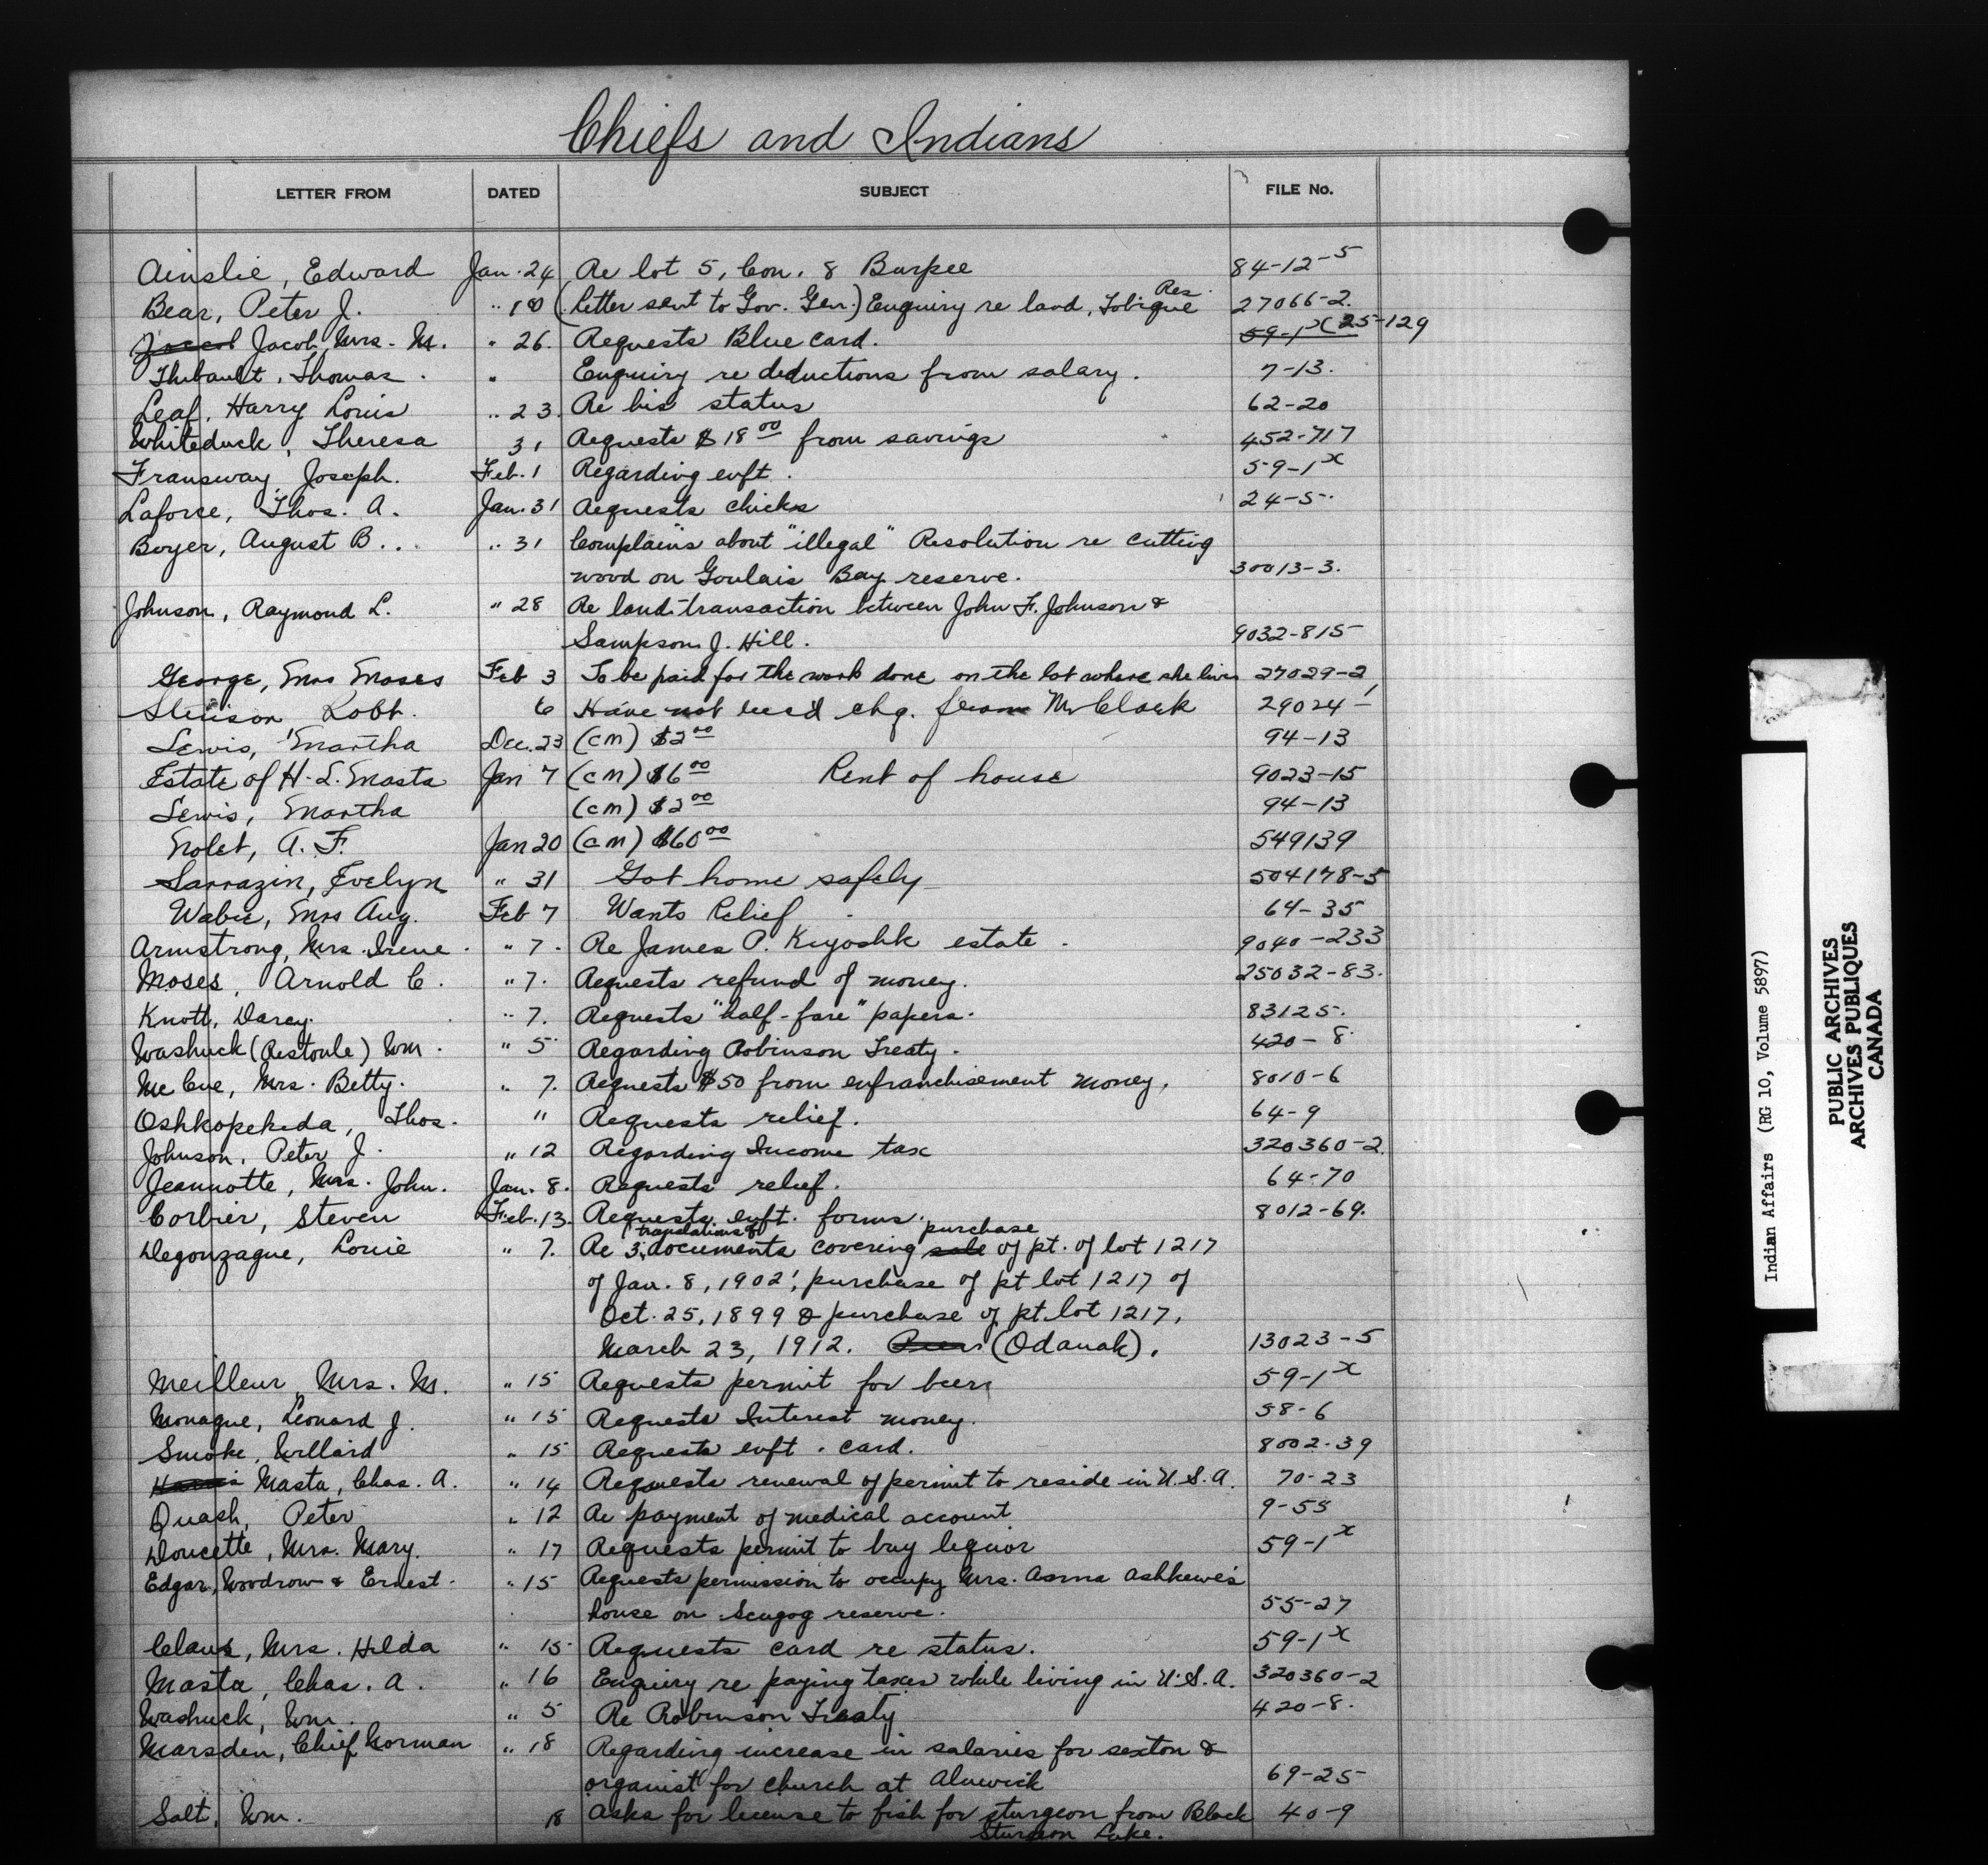 Chiefs and Indians
LETTER FROM DATED SUBJECT FILE No.
Ainslie, Edward Jan. 24 Re lot 5, Con. 8 Burpee 84-12-5
Bear, Peter J. " 18 (Letter sent to Gov. Gen.) Enquiry re land, Tobique Res. 27066-2.
Jacob, Mrs. M. " 26. Requests Blue card. 59-1x 25-129
Thibault, Thomas. " Enquiry re deductions from salary. 7-13.
Leaf, Harry Louis " 23. Re his status 62-20
Whiteduck, Theresa 31 Requests $18 00 from savings 452-717
Fransway, Joseph. Feb. 1 Regarding enft. 59-1x
Laforce, Thos. A. Jan. 31 Requests chicks 24-5.
Boyer, August B... " 31 Complains about "illegal" Resolution re cutting
wood on Goulais Bay reserve. 30013-3.
Johnson, Raymond L. " 28 Re land transaction between John F. Johnson &
Sampson J. Hill. 9032-815
George, Mrs Moses Feb 3 To be paid for the work done on the lot where she lives 27029-2
Robt. 6 Have not recd chq. from Mr Clark 29024-1
Lewis, Martha Dec. 23 (cm) $2 00 94-13
Estate of H. L. Masta Jan 7 (cm) $6 00 Rent of house 9023-15
Lewis, Martha (cm) $2 00 94-13
Nolet, A. F. Jan 20 (cm) $60 00 549139
Sarrazin, Evelyn " 31 Got home safely 504178-5
Wabie, Mrs Aug. Feb 7 Wants Relief 64-35
Armstrong, Mrs. Irene. " 7. Re James P. Kiyoshk estate. 9040-233
Moses, Arnold C. " 7. Requests refund of money. 25032-83.
Knott, Darcy. " 7. Requests "half-fare" papers. 83125.
Washuck (Restoule) Wm. " 5 Regarding Robinson Treaty. 420-8.
McCue, Mrs. Betty. " 7. Requests $50 from enfranchisement money. 8010-6
Oshkopekeda, Thos. " Requests relief. 64-9
Johnson, Peter J. " 12 Regarding Income tax 320360-2.
Jeannotte, Mrs. John. Jan. 8. Requests relief. 64-70
Corbier, Steven Feb. 13. Requests enft. forms. 8012-69.
Degonzague, Louie " 7. Re 3 (translations of) documents covering sale purchase of pt. of lot 1217
of Jan. 8, 1902; purchase of pt lot 1217 of
Oct. 25, 1899 & purchase of pt. lot 1217,
March 23, 1912. (Odanak). 13023-5
Meilleur, Mrs. M. " 15 Requests permit for beer 59-1x
Monague, Leonard J. " 15 Requests Interest money. 58-6
Smoke, Willard " 15 Requests enft. card. 8002-39
Harris Masta, Chas. A. " 14 Requests renewal of permit to reside in U.S.A. 70-23
Quash, Peter " 12 Re payment of medical account 9-55
Doucette, Mrs. Mary. " 17 Requests permit to buy liquor 59-1x
Edgar, Woodrow & Ernest. " 15 Requests permission to occupy Mrs. Anna Ashkewe's
house on Scugog reserve. 55-27
Claus, Mrs. Hilda " 15 Requests card re status. 59-1x
Masta, Chas. A. " 16 Enquiry re paying taxes while living in U.S.A. 320360-2
Washuck, Wm. " 5 Re Robinson Treaty 420-8.
Marsden, Chief Norman " 18 Regarding increase in salaries for sexton &
organist for church at Alnwick 69-25
Salt, Wm. 18 Asks for license to fish for sturgeon from Black 40-9
Sturgeon Lake.
Indian Affairs (RG 10, Volume 5897)
PUBLIC ARCHIVES
ARCHIVES PUBLIQUES
CANADA